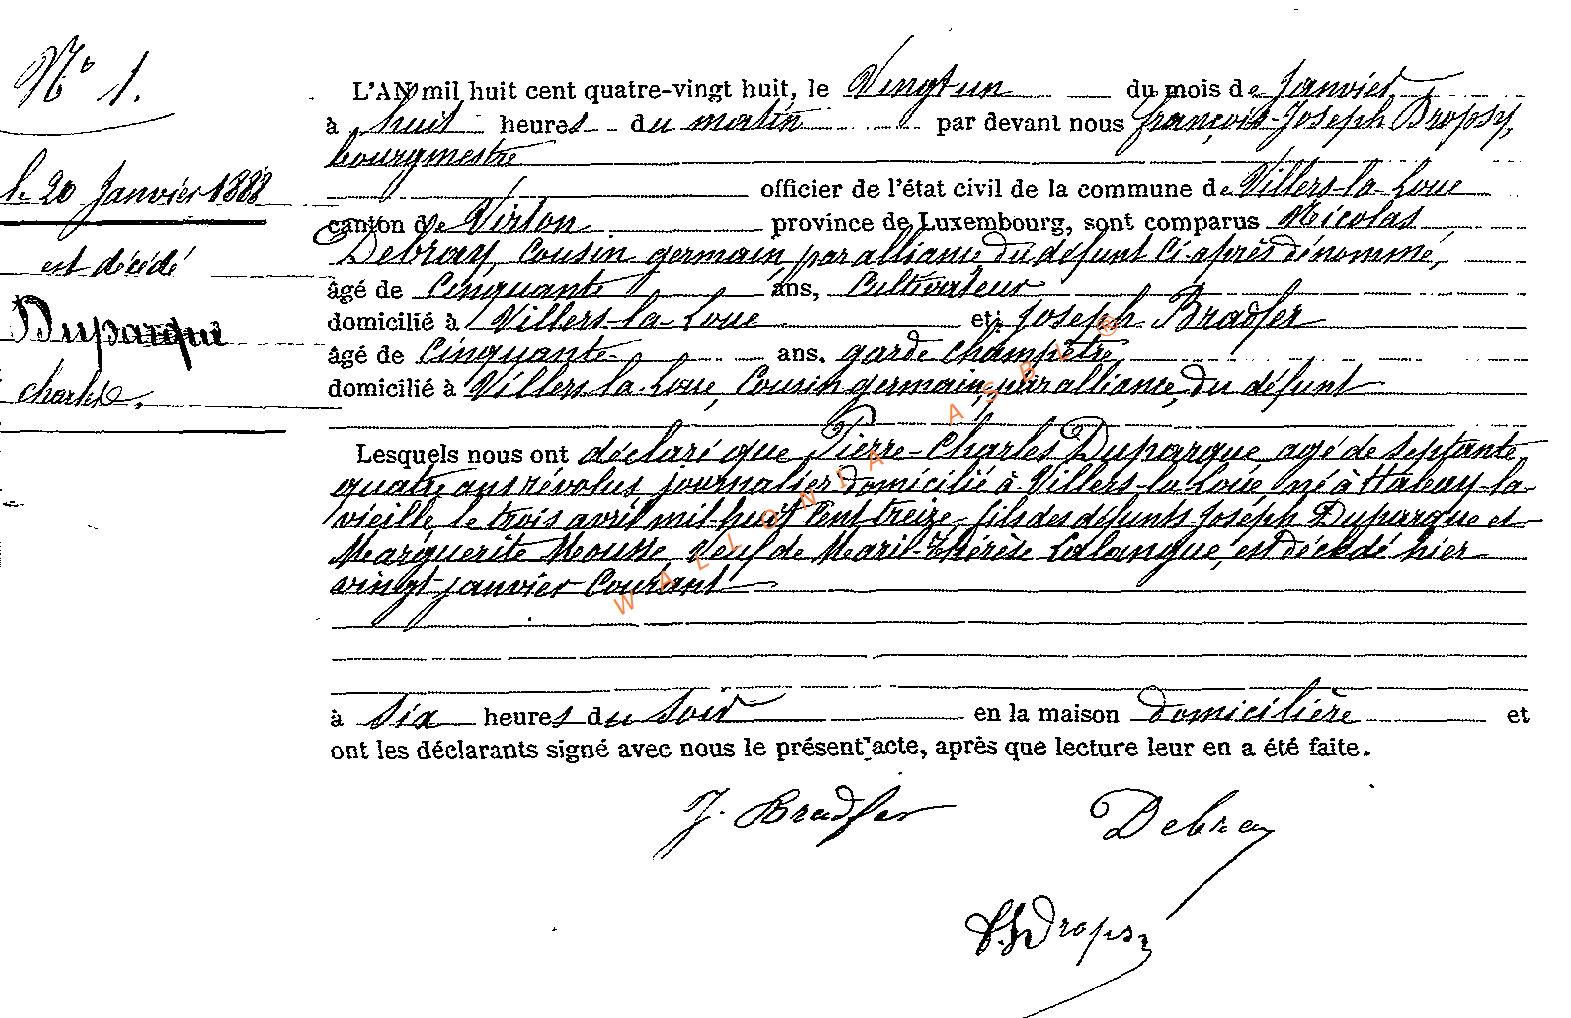 N° 1.
le 20 Janvier 1888
est décédé
Duparque
Charles.
L'AN mil huit cent quatre-vingt huit, le Vingt un du mois de Janvier
à huit heures du matin par devant nous françois-Joseph Dropsy,
bourgmestre
officier de l'état civil de la commune de Villers-la-Loue
canton de Virton province de Luxembourg, sont comparus Nicolas
Debray, Cousin germain, par alliance du défunt ci-après dénommé,
âgé de Cinquante ans, Cultivateur
domicilié à Villers-la-Loue et: Joseph Bradfer
âgé de Cinquante ans. garde champêtre,
domicilié à Villers-la-Loue, Cousin germain, par alliance, du défunt
Lesquels nous ont déclaré que Pierre-Charles Duparque agé de septante
quatre ans révolus, journalier domicilié à Villers-la-Loue né à Habay-la-
vieille, le trois avril mil-huit Cent treize, fils des défunts Joseph Duparque et
Marguerite Mousse, Veuf de Marie-Thérèse Lalangue, est décédé hier
vingt janvier Courant
à Six heures du Soir en la maison domicilière et
ont les déclarants signé avec nous le présent acte, après que lecture leur en a été faite.
J. Bradfer Debray
F.J Dropsy
WALLONIA ASBL ®